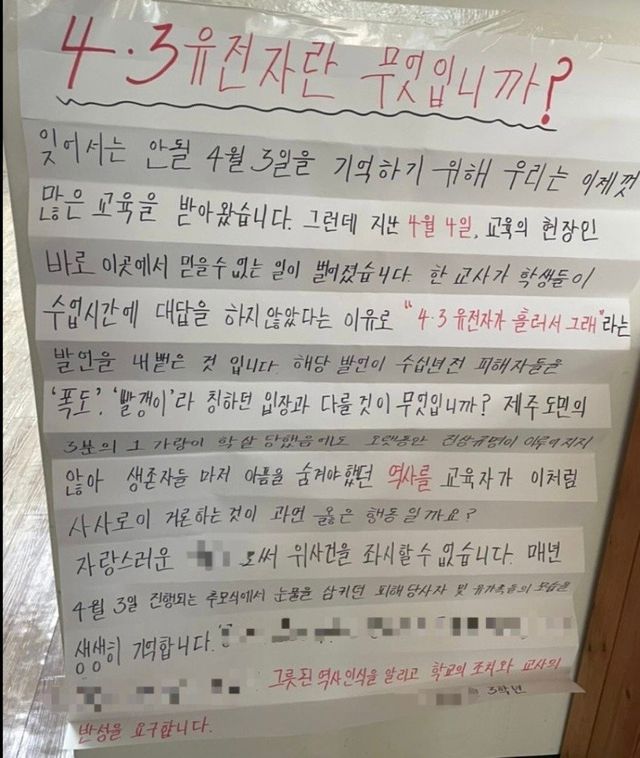 4·3유전자란 무엇입니까?
잊어서는 안될 4월 3일을 기억하기 위해 우리는 이제껏
많은 교육을 받아왔습니다. 그런데 지난 4월 4일, 교육의 현장인
바로 이곳에서 믿을수 없는 일이 벌어졌습니다. 한 교사가 학생들이
수업시간에 대답을 하지 않았다는 이유로 "4·3 유전자가 흘러서 그래"라는
발언을 내뱉은 것 입니다. 해당 발언이 수십년전 피해자들을
'폭도', '빨갱이'라 칭하던 입장과 다를것이 무엇입니까? 제주도민의
3분의 1 가량이 학살 당했음에도 오랫동안 진상규명이 이루어지지
않아 생존자들 마저 아픔을 숨겨야했던 역사를 교육자가 이처럼
사사로이 거론하는것이 과연 옳은 행동일까요?
자랑스러운 로써 위사건을 좌시할 수 없습니다. 매년
4월 3일 진행되는 추모식에서 눈물을 삼키던 피해당사자 및 유가족들의 모습을
생생히 기억합니다.
그릇된 역사인식을 알리고 학교의 조치와 교사의
3학년
반성을 요구합니다.